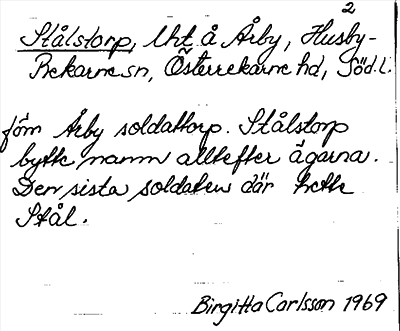 2
Stålstorp, lht å Årby, Husby-
Rekarne sn, Österrekarne hd, Söd.l.
f ö m Årby soldattorp. Stålstorp
bytte namn alltefter ägarna.
Den sista soldaten där hette
Stål.
Birgitta Carlsson 1969